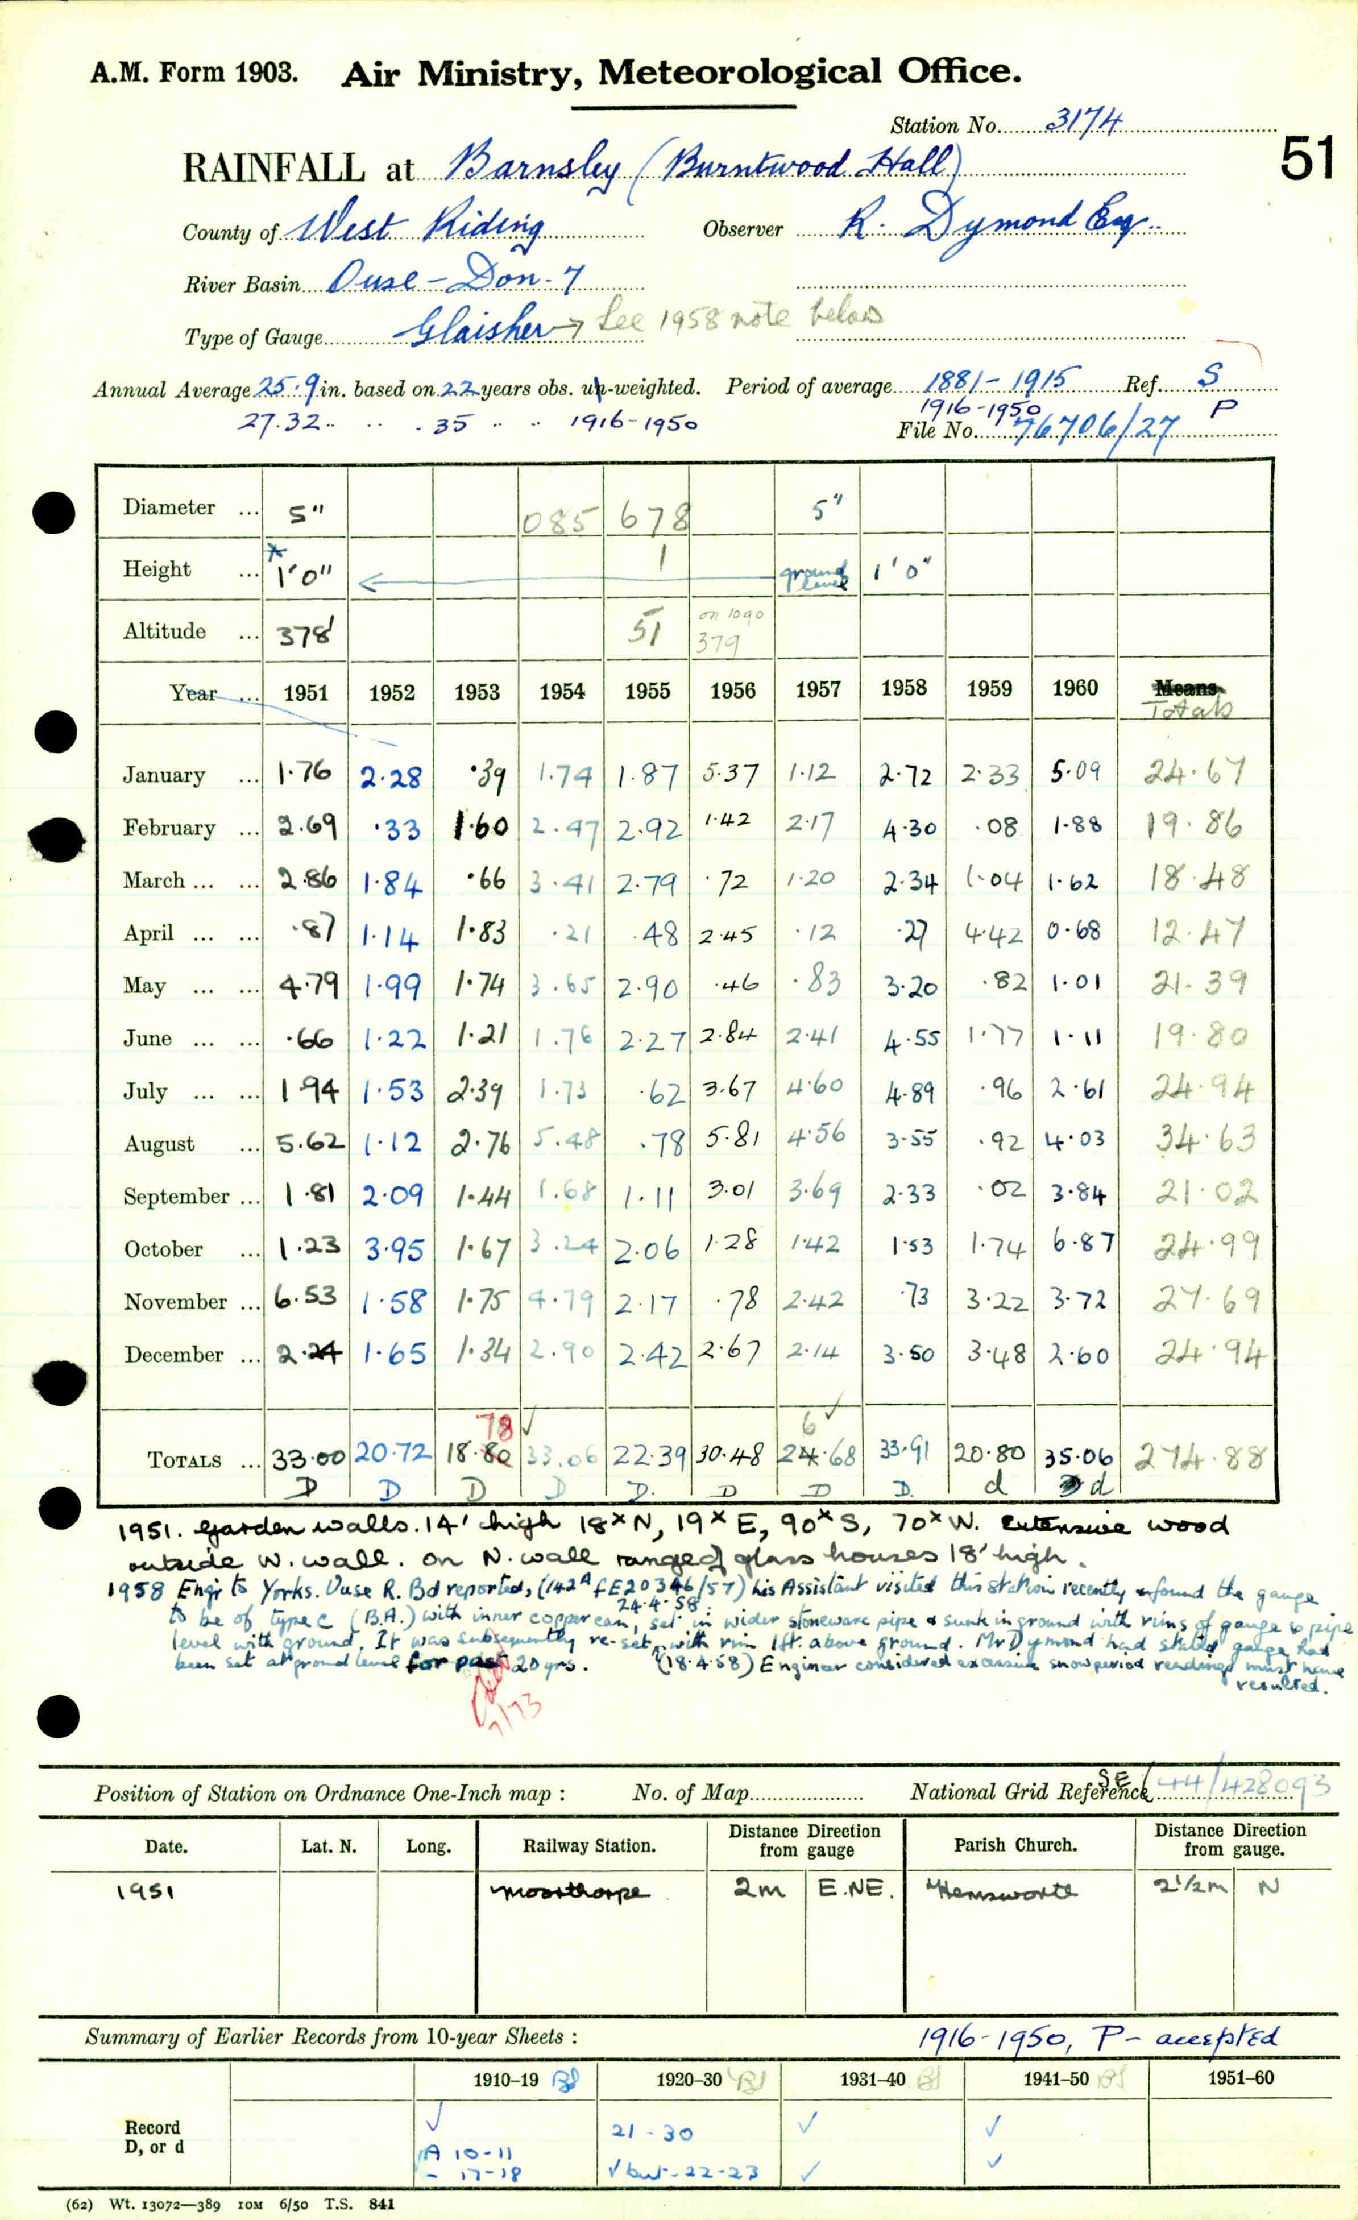 A.M. Form 1903. Air Ministry, Meteorological Office.
Station No. 3174
51
RAINFALL at Barnsley (Burntwood Hall)
County of West Riding Observer R. Dymond Esq.
River Basin Ouse - Don - 7
Type of Gauge Glaisher → See 1958 note below
Annual Average 25.9 in. based on 22 years obs. un-weighted. Period of average 1881-1915 Ref. S
27.32 .. .. . 35 .. .. 1916-1950 1916-1950 P
File No. 76706/27
Diameter ... 5" 085 678 5"
Height ... 1'0" 1 ground level 1'0"
Altitude ... 378' 51 on 1090 379
Year ... 1951 1952 1953 1954 1955 1956 1957 1958 1959 1960 Means
Totals
January ... 1.76 2.28 .39 1.74 1.87 5.37 1.12 2.72 2.33 5.09 24.67
February ... 2.69 .33 1.60 2.47 2.92 1.42 2.17 4.30 .08 1.88 19.86
March ... ... 2.86 1.84 .66 3.41 2.79 .72 1.20 2.34 1.04 1.62 18.48
April ... ... .87 1.14 1.83 .21 .48 2.45 .12 .27 4.42 0.68 12.47
May ... ... 4.79 1.99 1.74 3.65 2.90 .46 .83 3.20 .82 1.01 21.39
June ... ... .66 1.22 1.21 1.76 2.27 2.84 2.41 4.55 1.77 1.11 19.80
July ... ... 1.94 1.53 2.39 1.73 .62 3.67 4.60 4.89 .96 2.61 24.94
August ... 5.62 1.12 2.76 5.48 .78 5.81 4.56 3.55 .92 4.03 34.63
September ... 1.81 2.09 1.44 1.68 1.11 3.01 3.69 2.33 .02 3.84 21.02
October ... 1.23 3.95 1.67 3.24 2.06 1.28 1.42 1.53 1.74 6.87 24.99
November ... 6.53 1.58 1.75 4.79 2.17 .78 2.42 .73 3.22 3.72 27.69
December ... 2.24 1.65 1.34 2.90 2.42 2.67 2.14 3.50 3.48 2.60 24.94
78 ✓ 6 ✓
TOTALS ... 33.00 20.72 18.80 33.06 22.39 30.48 24.68 33.91 20.80 35.06 274.88
D D D D D. D D D. d d
1951. Garden walls. 14' high 18ˣN, 19ˣE, 90ˣS, 70ˣW. Extensive wood
outside W. wall. on N. wall range of glass houses 18' high.
1958 Engr to Yorks. Ouse R. Bd reported, (142ᴬ fE20346/57) his Assistant visited this station recently & found the gauge
24.4.58.
to be of type C (B.A.) with inner copper can, set in wider stoneware pipe & sunk in ground with rims of gauge & pipe
level with ground. It was subsequently re-set, with rim 1ft. above ground. Mr Dymond had stated gauge had
been set at ground level for past 20 yrs. (18.4.58) Engineer considered excessive snow period readings must have
resulted.
7/73
Position of Station on Ordnance One-Inch map : No. of Map National Grid Reference SE/44/428093
Date. Lat. N. Long. Railway Station. Distance Direction from gauge Parish Church. Distance Direction from gauge.
1951 Moorthorpe 2m E.NE. Hemsworth 2½m N
Summary of Earlier Records from 10-year Sheets : 1916-1950, P - accepted
1910–19 1920–30 1931–40 1941–50 1951–60
Record ✓ 21-30 ✓ ✓
D, or d A 10-11
- 17-18 ✓ but - 22-23 ✓ ✓
(62) Wt. 13072—389 10M 6/50 T.S. 841